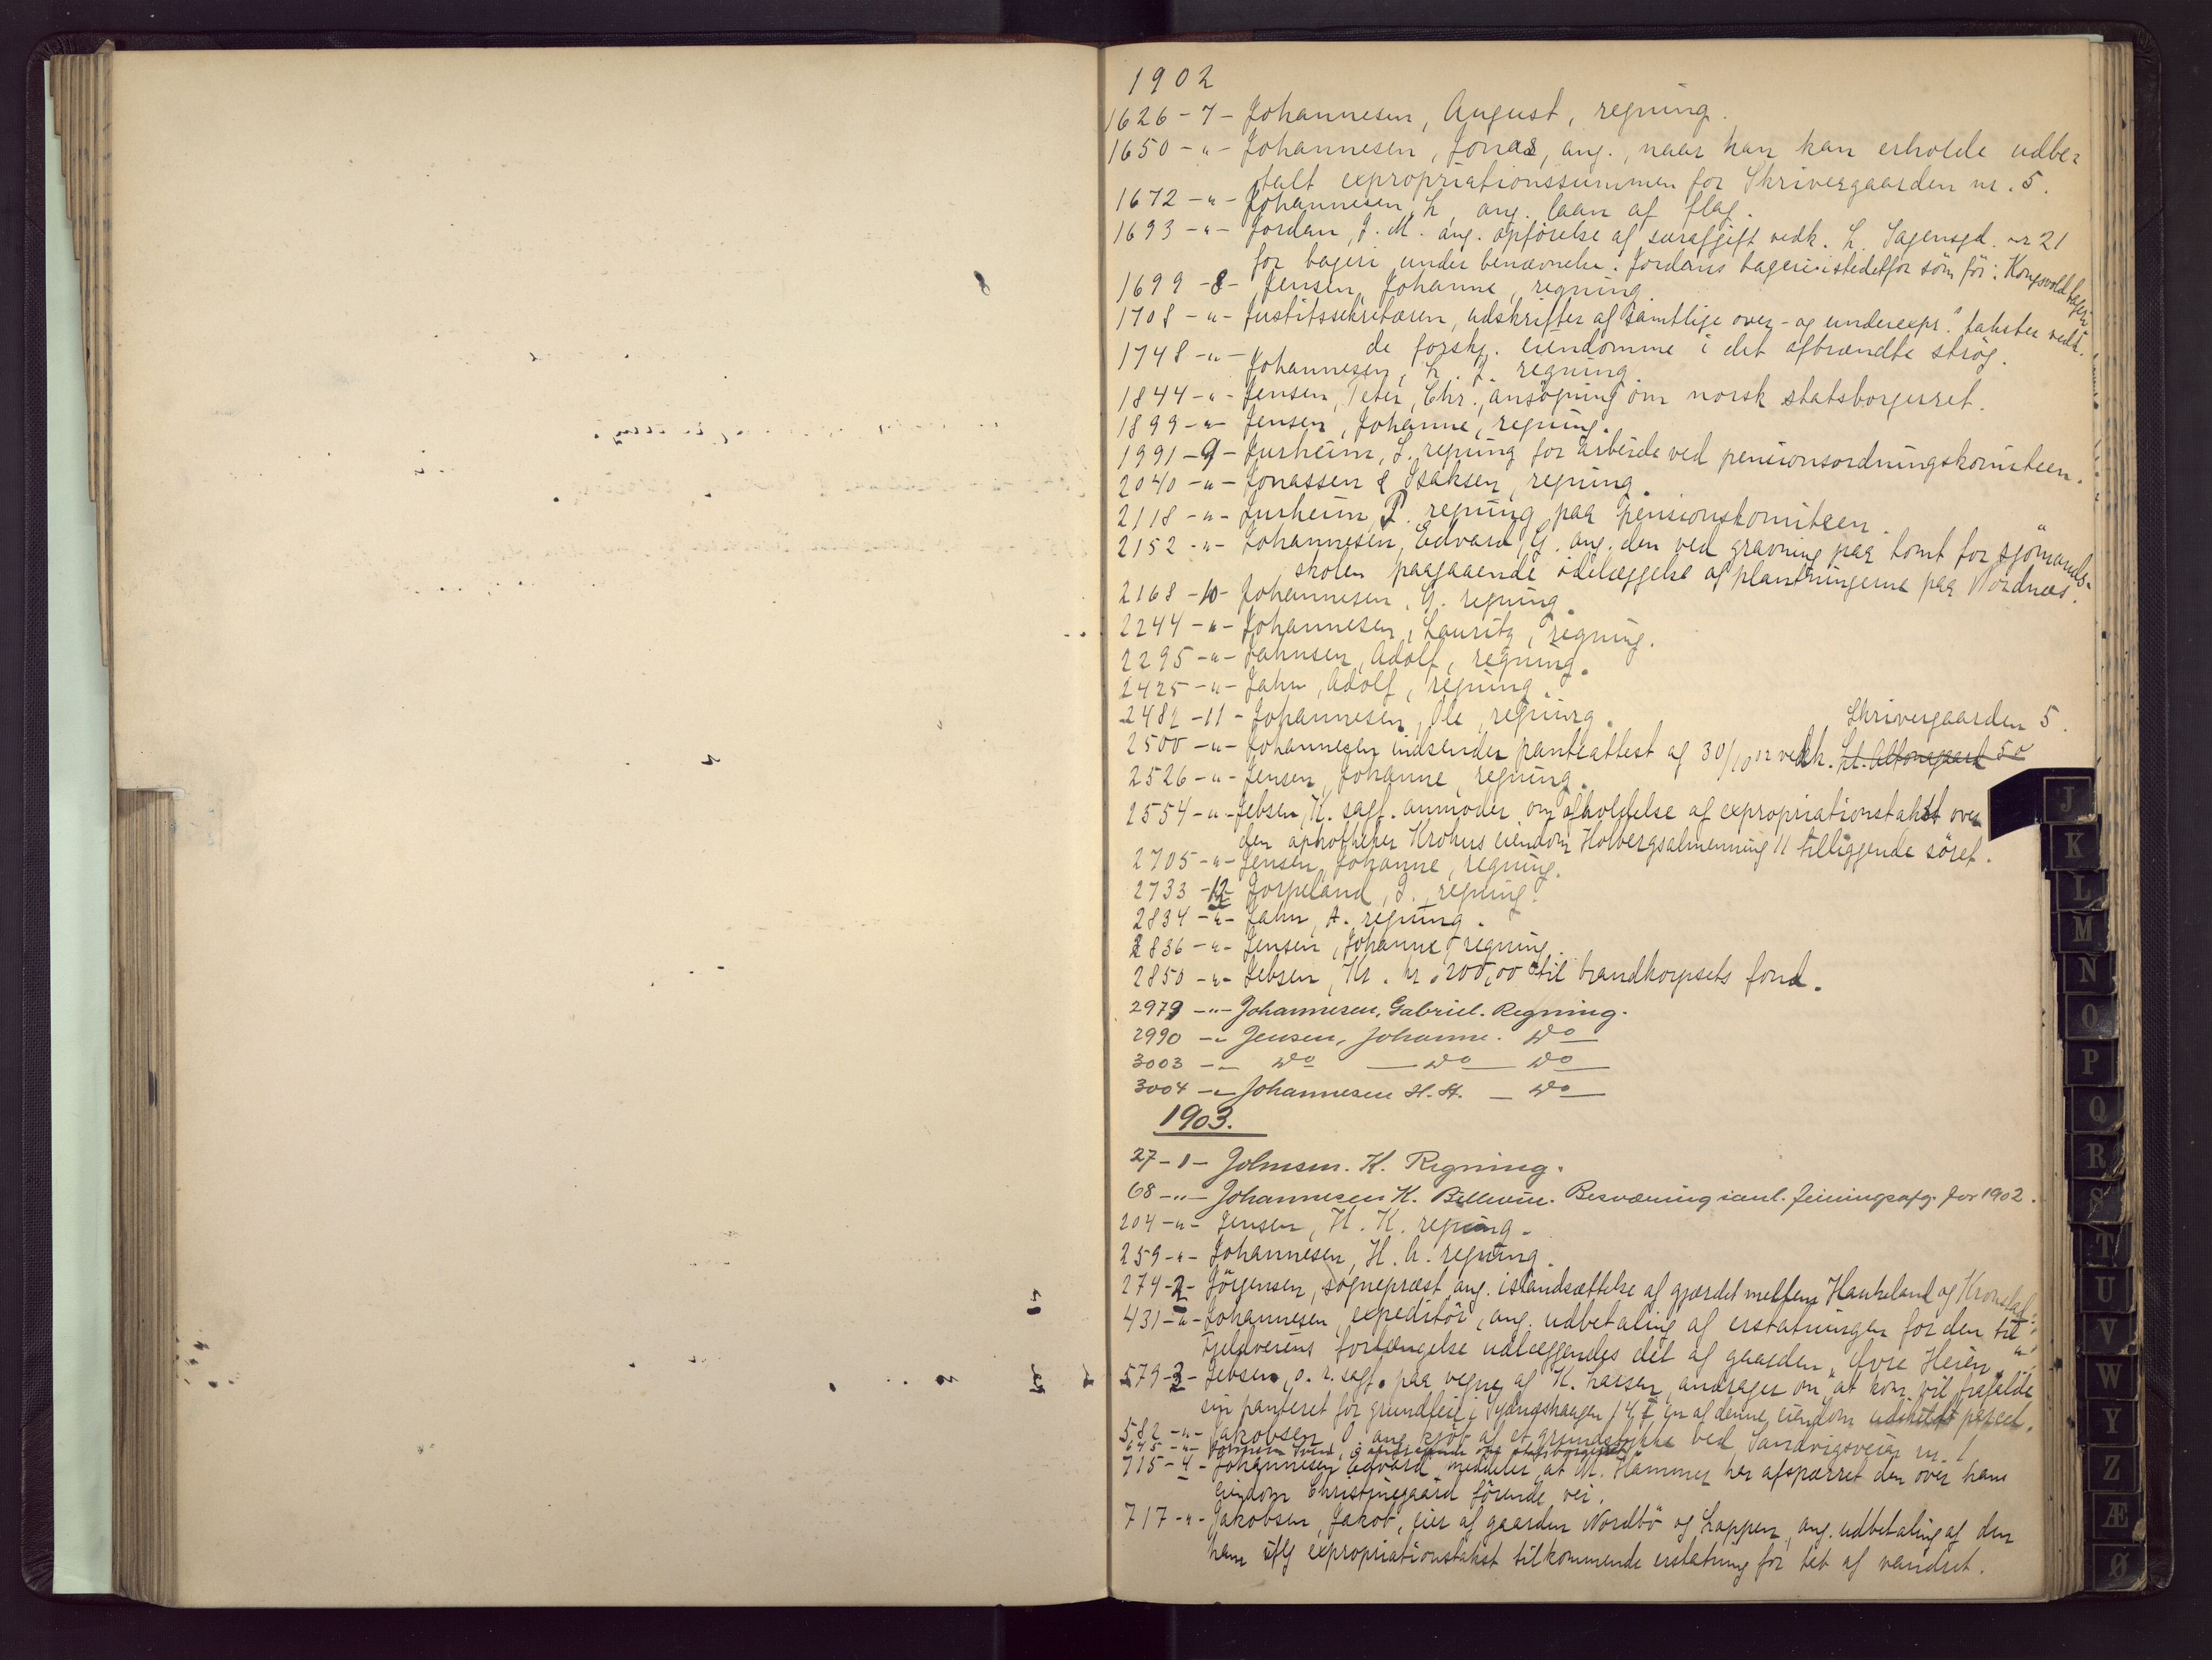 1902
1626 - 7 - Johannesen, August, regning.
1650 - " - Johannesen, Jonas, ang., naar han kan erholde udbe-
talt expropriationssummen for Skrivergaarden nr. 5.
1672 - " - Johannesen, L, ang. laan af flag.
1693 - " - Jordan, J. M. ang. opförelse af særafgift vedk. L. Sagensgd. nr 21
for bageri under benævnelse: Jordans bageri istedetfor som för: Kongsvold bageri
1699 - 8 - Jensen, Johanne, regning.
1708 - " - Justitssekretæren, udskrifter af samtlige over- og underexpr. takster vedk.
de forskj. eiendomme i det afbrændte strög.
1748 - " - Johannesen, L. J. regning.
1844 - " - Jensen, Peter, Chr., ansögning om norsk statsborgerret.
1899 - " - Jensen, Johanne, regning.
1991 - 9 - Jurheim, L. regning for arbeide ved pensionsordningskomiteen.
2040 - " - Jonassen & Isaksen, regning.
2118 - " - Jurheim, P. regning paa pensionskomiteen.
2152 - " - Johannesen, Edvard, G. ang. den ved gravning paa tomt for sjömands-
skolen paagaaende ödelæggelse af plantningerne paa Nordnes.
2168 - 10 - Johannesen, G. regning.
2244 - " - Johannesen, Lauritz, regning.
2295 - " - Jahnsen, Adolf, regning.
2425 - " - Jahn, Adolf, regning.
2482 - 11 - Johannesen, Ole, regning.
Skrivergaarden 5.
2500 - " - Johannesen indsender panteattest af 30/10 02 vedk. Lt. Altonagaard 50
2526 - " - Jensen, Johanne, regning.
2554 - " - Jebsen, K. sagf. anmoder om afholdelse af expropriationstakst over
den apotheker Krohns eiendom Holbergsalmenning 11 tilliggende söret.
2705 - " - Jensen, Johanne, regning.
2733 - 12 - Jorpeland, J., regning.
2834 - " - Jahn, A. regning.
2836 - " - Jensen, Johanne, regning.
2850 - " - Jebsen, Kr. kr. 200,00 til brandkorpsets fond.
2979 - " - Johannesen, Gabriel. Regning.
2990 - " Jensen, Johanne. Do
3003 - " Do — Do — Do
3004 - " Johannesen H. H. — Do
1903.
27 - 1 - Johnsen. K. Regning.
68 - " - Johannesen K. Bellevue. Besværing ianl. feiningsafg. for 1902.
204 - " - Jensen, H. K. regning.
259 - " - Johannesen, H. A. regning.
274 - 2 - Jörgensen, sognepræst ang. istandsættelse af gjærdet mellem Haukeland og Kronstad.
431 - " - Johannesen, expeditör, ang. udbetaling af erstatningen for den til
Fjeldveiens forlængelse udlæggendes del af gaarden "Övre Heien".
579 - 3 - Jebsen, o. r. sagf. paa vegne af K. Larsen, andrager om, at kom. vil frafalde
sin panteret for grundleie i Sydneshaugen 14 I en af denne eiendom udskildt parcel.
582 - " - Jakobsen, O. ang. kjöb af et grundstykke ved Sandvigsveien nr. 1
645 - " - Johnsen
715 - 4 - Johannesen, Edvard, meddeler, at M. Hammer har afspærret den over hans
eiendom Christinegaard förende vei.
717 - " - Jakobsen, Jakob, eier af gaarden Nordbö og Lappen, ang. udbetaling af den
ham iflg expropriationstakst tilkommende erstatning for tab af vandret.
J
K
L
M
N
O
P
Q
R
S
T
U
V
W
Y
Z
Æ
Ø